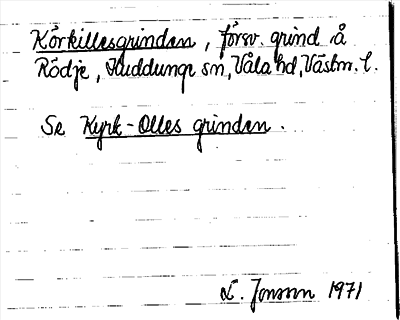 Körkillesgrinden, försv. grind å
Rödje, Huddunge sn, Våla hd, Västm. l.
Se Kyrk-Olles grinden.
L. Jonson 1971